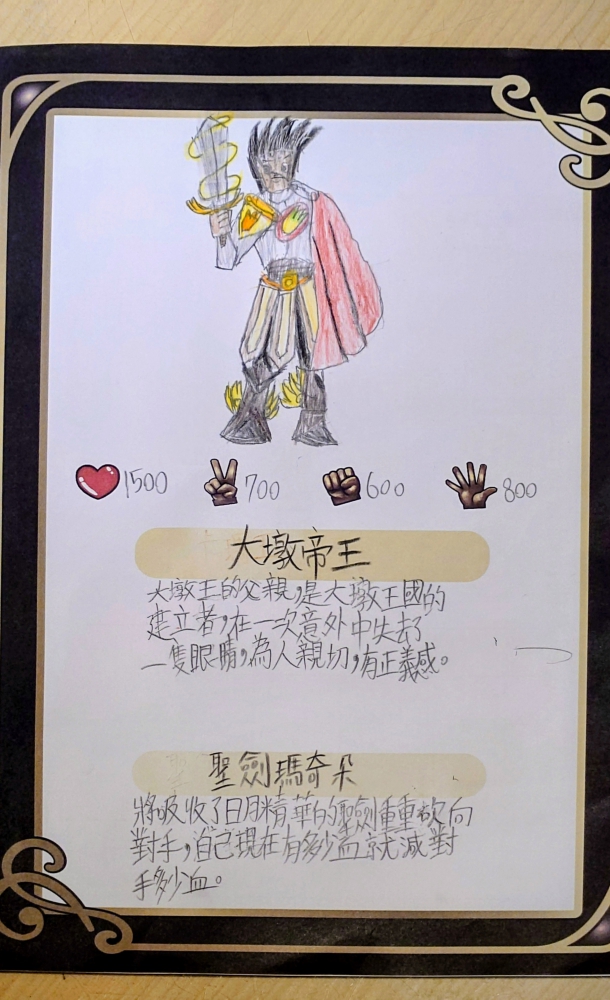 1500 700 600 800
大墩帝王
大墩王的父親,是大墩王國的
建立者,在一次意外中失去了
一隻眼睛,為人親切,有正義感。
聖劍瑪奇朵
將吸收了日月精華的聖劍重重砍向
對手,自己現在有多少血就減對
手多少血。